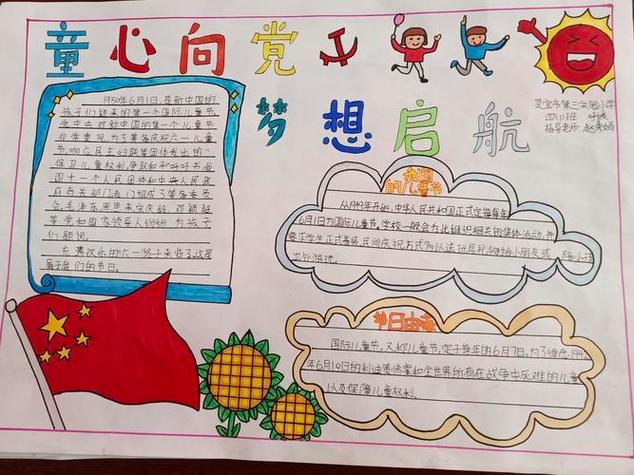 童心向党
梦想启航
灵宝市第三实验小学
四(1)班
指导老师
1950年6月1日,是新中国的
孩子们迎来的第一个国际儿童节。
党中央对新中国的第一个儿童节
非常重视,为了筹备庆祝六一儿童
节,响应民主妇联等团体发出的"
保卫儿童权利,争取和平"呼书,全
国十一个人民团体和中央人民政
府有关部门,专门组成了筹备委员
会。毛泽东、周恩来、宋庆龄、邓颖超
等党和国家领导人纷纷为孩子
们题词。
六一终于来临了,这是
属于我们的节日。
我国
的儿童节
从1949年开始,中华人民共和国正式定每年
6月1日为国际儿童节。学校一般会为此组织相关的集体活动,并
要求学生正式着装,民间庆祝方式
出外游玩。
节日由来
国际儿童节,又称儿童节,定于每年的6月1日。为了悼念1942
年6月10日的利迪策惨案和全世界所有在战争中死难的儿童
以及保障儿童权利。